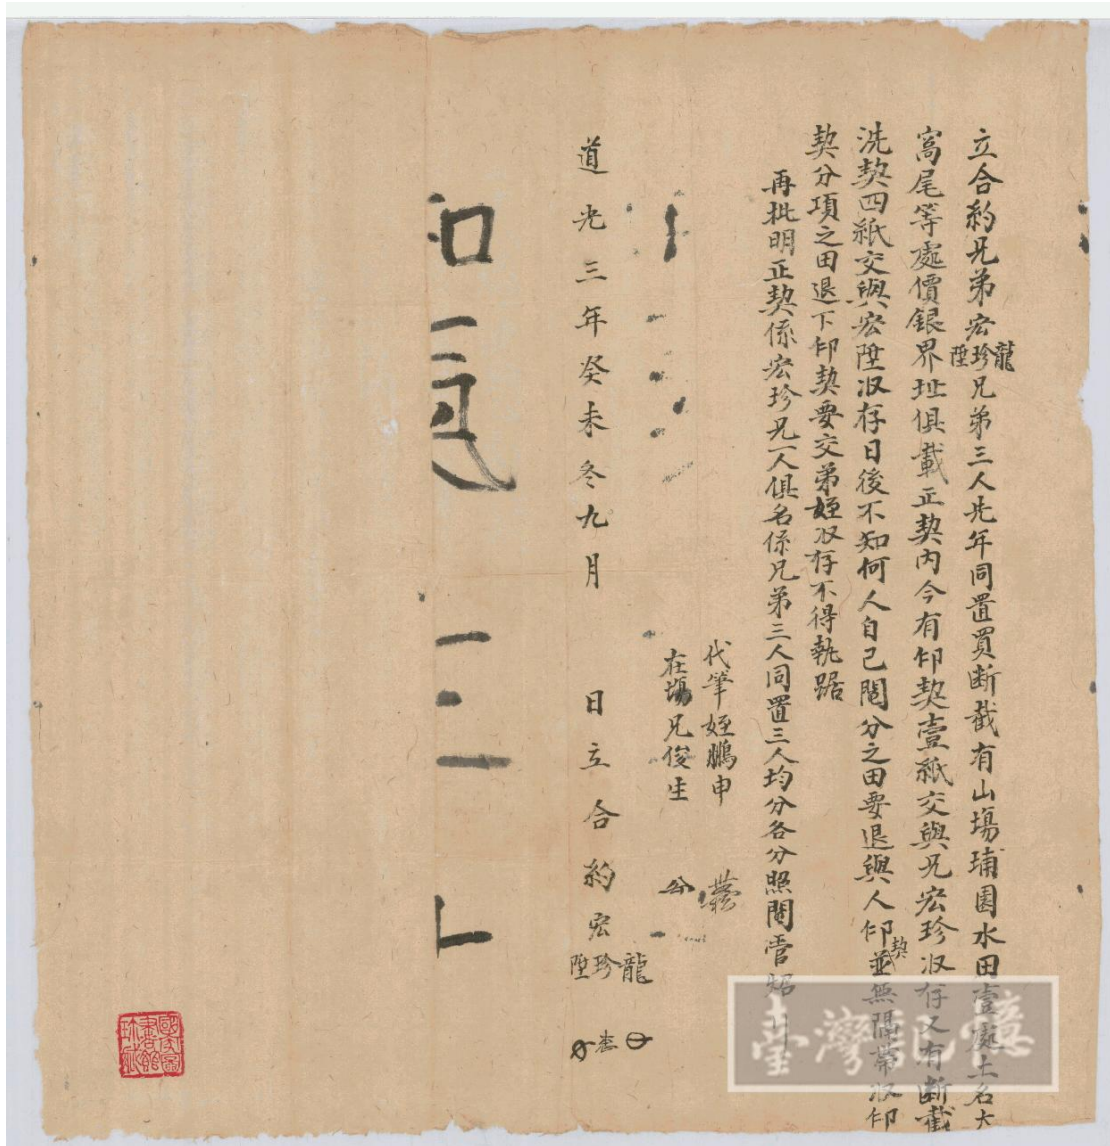 立合約兄弟宏龍珍陞兄弟三人先年同置買断截有山塲埔園水田壹處土名大
窩尾等處價銀界址俱載正契內今有印契壹紙交與兄宏珍收存又有断截
洗契四紙交與宏陞收存日後不知何人自己鬮分之田要退與人印契並無隔帶收印
契分項之田退下印契要交弟姪收存不得執踞
再批明正契係宏珍兄一人俱名係兄弟三人同置三人均分各分照鬮管
代筆姪鵬申
在塲兄俊生
道光三年癸未冬九月 日立合約宏龍珍陞
臺灣記憶